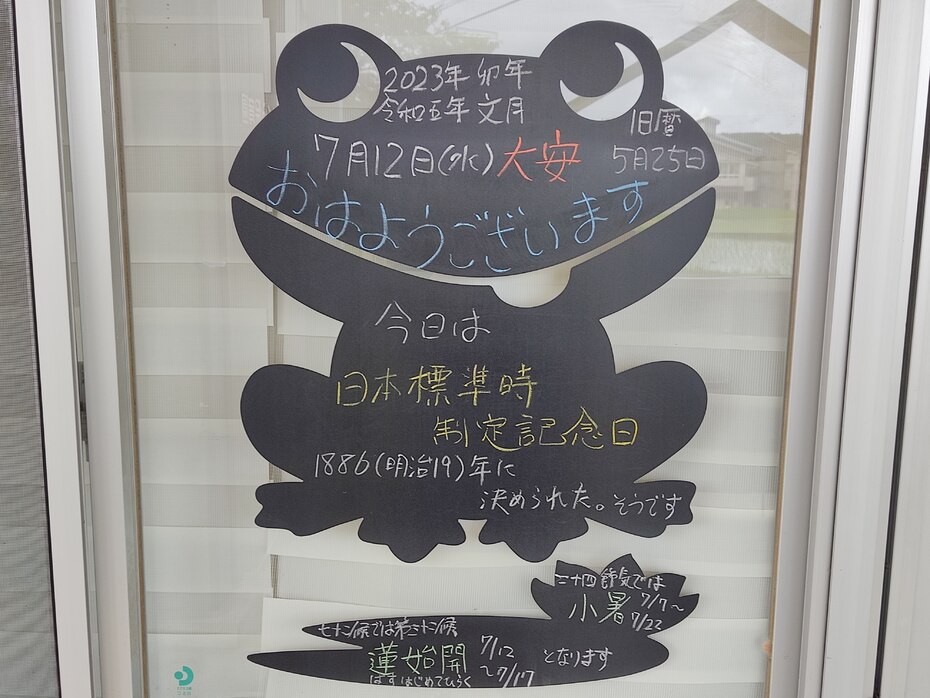 2023年 卯年
令和五年 文月
旧暦
5月25日
7月12日(水)大安
おはようございます
今日は
日本標準時
制定記念日
1886(明治19)年に
決められた。そうです
二十四節気では
小暑 7/7～
7/22
七十二候では第三十二候
蓮始開 7/12
～7/17 となります
はすはじめてひらく